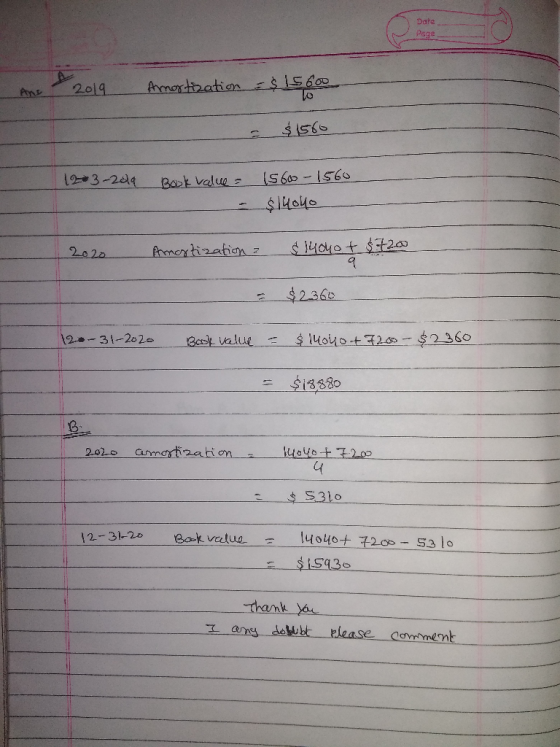 Date
Page
Ans A 2019 Amortization = $ 15600
10
= $1560
12-3-2019 Book value = 15600 - 1560
= $14040
2020 Amortization = $ 14040 + $7200
9
= $2360
12-31-2020 Book value = $14040 + 7200 - $2360
= $18,880
B.
2020 amortization = 14040 + 7200
4
= $ 5310
12-31-20 Book value = 14040 + 7200 - 5310
= $15930
Thank you
I any doubt please comment